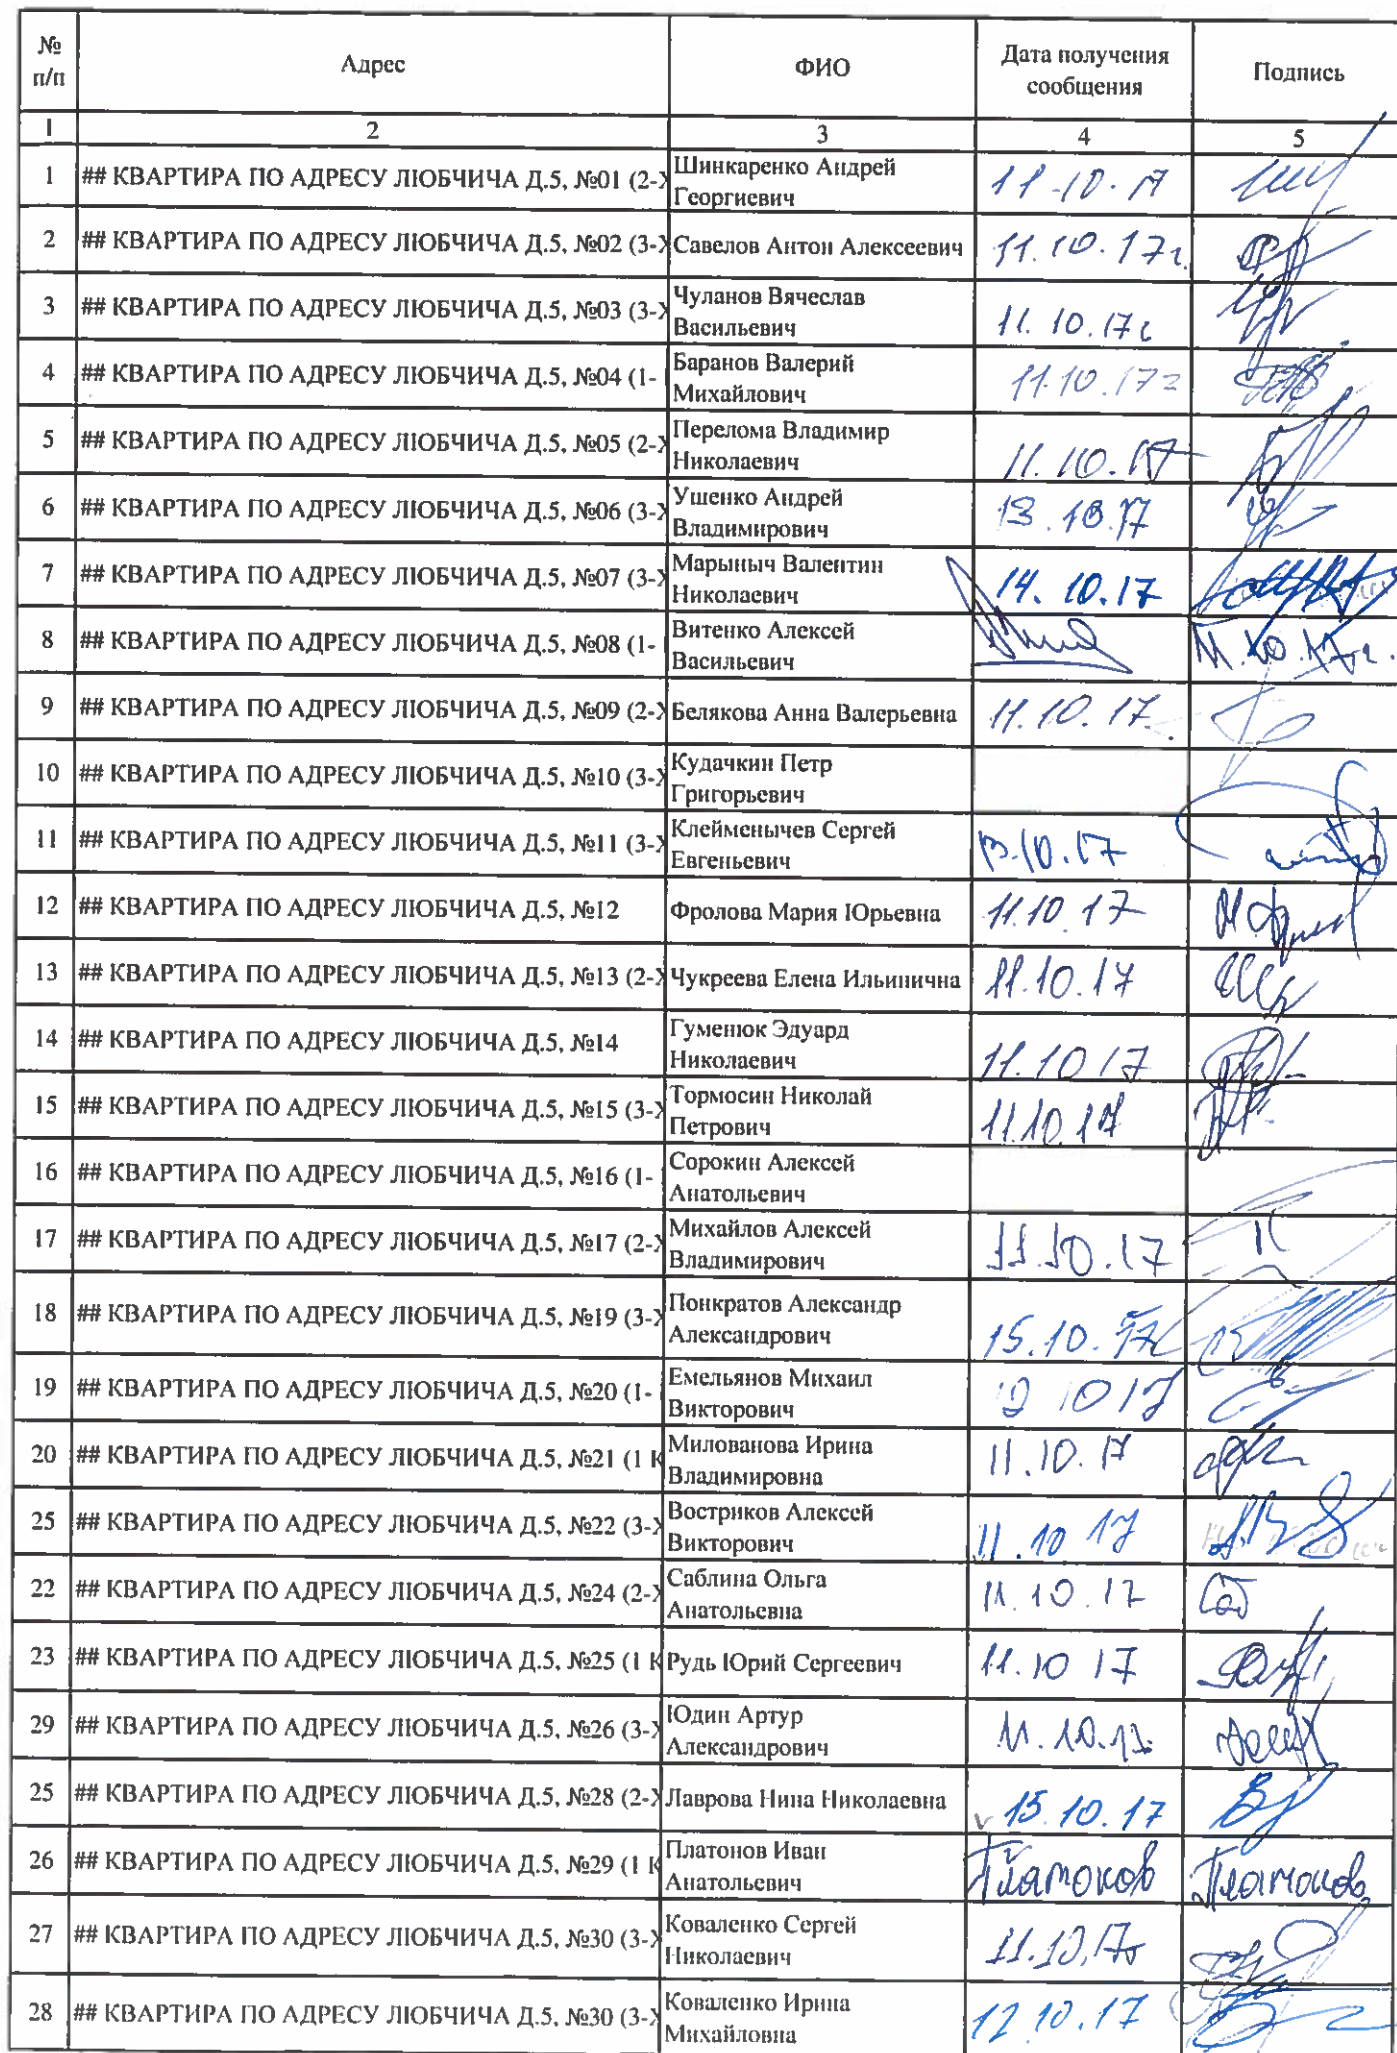 № п/п Адрес ФИО Дата получения сообщения Подпись
1 2 3 4 5
1 ## КВАРТИРА ПО АДРЕСУ ЛЮБЧИЧА Д.5, №01 (2-Х Шинкаренко Андрей Георгиевич 11.10.17
2 ## КВАРТИРА ПО АДРЕСУ ЛЮБЧИЧА Д.5, №02 (3-Х Савелов Антон Алексеевич 11.10.17г.
3 ## КВАРТИРА ПО АДРЕСУ ЛЮБЧИЧА Д.5, №03 (3-Х Чуланов Вячеслав Васильевич 11.10.17г
4 ## КВАРТИРА ПО АДРЕСУ ЛЮБЧИЧА Д.5, №04 (1- Баранов Валерий Михайлович 11.10.17г
5 ## КВАРТИРА ПО АДРЕСУ ЛЮБЧИЧА Д.5, №05 (2-Х Перелома Владимир Николаевич 11.10.17
6 ## КВАРТИРА ПО АДРЕСУ ЛЮБЧИЧА Д.5, №06 (3-Х Ушенко Андрей Владимирович 13.10.17
7 ## КВАРТИРА ПО АДРЕСУ ЛЮБЧИЧА Д.5, №07 (3-Х Марыныч Валентин Николаевич 14.10.17
8 ## КВАРТИРА ПО АДРЕСУ ЛЮБЧИЧА Д.5, №08 (1- Витенко Алексей Васильевич 11.10.17г.
9 ## КВАРТИРА ПО АДРЕСУ ЛЮБЧИЧА Д.5, №09 (2-Х Белякова Анна Валерьевна 11.10.17
10 ## КВАРТИРА ПО АДРЕСУ ЛЮБЧИЧА Д.5, №10 (3-Х Кудачкин Петр Григорьевич
11 ## КВАРТИРА ПО АДРЕСУ ЛЮБЧИЧА Д.5, №11 (3-Х Клейменычев Сергей Евгеньевич 13.10.17
12 ## КВАРТИРА ПО АДРЕСУ ЛЮБЧИЧА Д.5, №12 Фролова Мария Юрьевна 11.10.17
13 ## КВАРТИРА ПО АДРЕСУ ЛЮБЧИЧА Д.5, №13 (2-Х Чукреева Елена Ильинична 11.10.17
14 ## КВАРТИРА ПО АДРЕСУ ЛЮБЧИЧА Д.5, №14 Гуменюк Эдуард Николаевич 11.10.17
15 ## КВАРТИРА ПО АДРЕСУ ЛЮБЧИЧА Д.5, №15 (3-Х Тормосин Николай Петрович 11.10.17
16 ## КВАРТИРА ПО АДРЕСУ ЛЮБЧИЧА Д.5, №16 (1- Сорокин Алексей Анатольевич
17 ## КВАРТИРА ПО АДРЕСУ ЛЮБЧИЧА Д.5, №17 (2-Х Михайлов Алексей Владимирович 11.10.17
18 ## КВАРТИРА ПО АДРЕСУ ЛЮБЧИЧА Д.5, №19 (3-Х Понкратов Александр Александрович 15.10.17
19 ## КВАРТИРА ПО АДРЕСУ ЛЮБЧИЧА Д.5, №20 (1- Емельянов Михаил Викторович 10 17
20 ## КВАРТИРА ПО АДРЕСУ ЛЮБЧИЧА Д.5, №21 (1 К Милованова Ирина Владимировна 11.10.17
25 ## КВАРТИРА ПО АДРЕСУ ЛЮБЧИЧА Д.5, №22 (3-Х Востриков Алексей Викторович 11.10 17
22 ## КВАРТИРА ПО АДРЕСУ ЛЮБЧИЧА Д.5, №24 (2-Х Саблина Ольга Анатольевна 11.10.17 Саб
23 ## КВАРТИРА ПО АДРЕСУ ЛЮБЧИЧА Д.5, №25 (1 К Рудь Юрий Сергеевич 11.10 17
29 ## КВАРТИРА ПО АДРЕСУ ЛЮБЧИЧА Д.5, №26 (3-Х Юдин Артур Александрович 11.10.17
25 ## КВАРТИРА ПО АДРЕСУ ЛЮБЧИЧА Д.5, №28 (2-Х Лаврова Нина Николаевна v 15.10.17
26 ## КВАРТИРА ПО АДРЕСУ ЛЮБЧИЧА Д.5, №29 (1 К Платонов Иван Анатольевич Платонов Платонов
27 ## КВАРТИРА ПО АДРЕСУ ЛЮБЧИЧА Д.5, №30 (3-Х Коваленко Сергей Николаевич 11.10.17г
28 ## КВАРТИРА ПО АДРЕСУ ЛЮБЧИЧА Д.5, №30 (3-Х Коваленко Ирина Михайловна 12.10.17